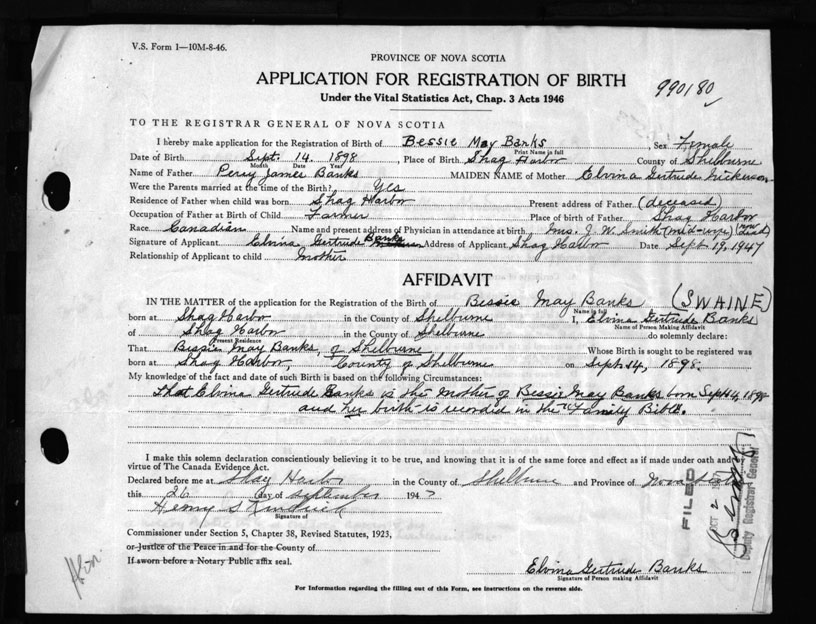 V.S. Form 1—10M-8-46.
PROVINCE OF NOVA SCOTIA
APPLICATION FOR REGISTRATION OF BIRTH
990180
Under the Vital Statistics Act, Chap. 3 Acts 1946
TO THE REGISTRAR GENERAL OF NOVA SCOTIA
I hereby make application for the Registration of Birth of Bessie May Banks, Sex Female
Print Name in full
Date of Birth Sept. 14. 1898, Place of Birth Shag Harbor County of Shelburne
Month Date Year
Name of Father Percy James Banks MAIDEN NAME of Mother Elvina Gertrude Nickerson
Were the Parents married at the time of the Birth? Yes
Residence of Father when child was born Shag Harbor Present address of Father (deceased)
Occupation of Father at Birth of Child Farmer Place of birth of Father Shag Harbor
Race Canadian Name and present address of Physician in attendance at birth Mrs. J. W. Smith (mid-wife) (now dead)
Signature of Applicant Elvina Gertrude Banks Address of Applicant Shag Harbor Date Sept 19, 1947
Relationship of Applicant to child mother
AFFIDAVIT
IN THE MATTER of the application for the Registration of the Birth of Bessie May Banks (SWAINE)
Name in full
born at Shag Harbor in the County of Shelburne I, Elvina Gertrude Banks
Name of Person Making Affidavit
of Shag Harbor in the County of Shelburne do solemnly declare:
Present Residence
That Bessie May Banks, of Shelburne Whose Birth is sought to be registered was
born at Shag Harbor, County of Shelburne on Sept. 14, 1898.
My knowledge of the fact and date of such Birth is based on the following Circumstances:
that Elvina Gertrude Banks is the mother of Bessie May Banks born Sept 14, 1898
and her birth is recorded in the "Family Bible.
I make this solemn declaration conscientiously believing it to be true, and knowing that it is of the same force and effect as if made under oath and by
virtue of The Canada Evidence Act.
Declared before me at Shag Harbor in the County of Shelburne and Province of Nova Scotia
this 26 day of September 1947
Henry S
Signature of
Commissioner under Section 5, Chapter 38, Revised Statutes, 1923,
or Justice of the Peace in and for the County of
If sworn before a Notary Public affix seal.
FILED
OCT 2
Deputy Registrar General
Elvina Gertrude Banks
Signature of Person making Affidavit
For Information regarding the filling out of this Form, see instructions on the reverse side.